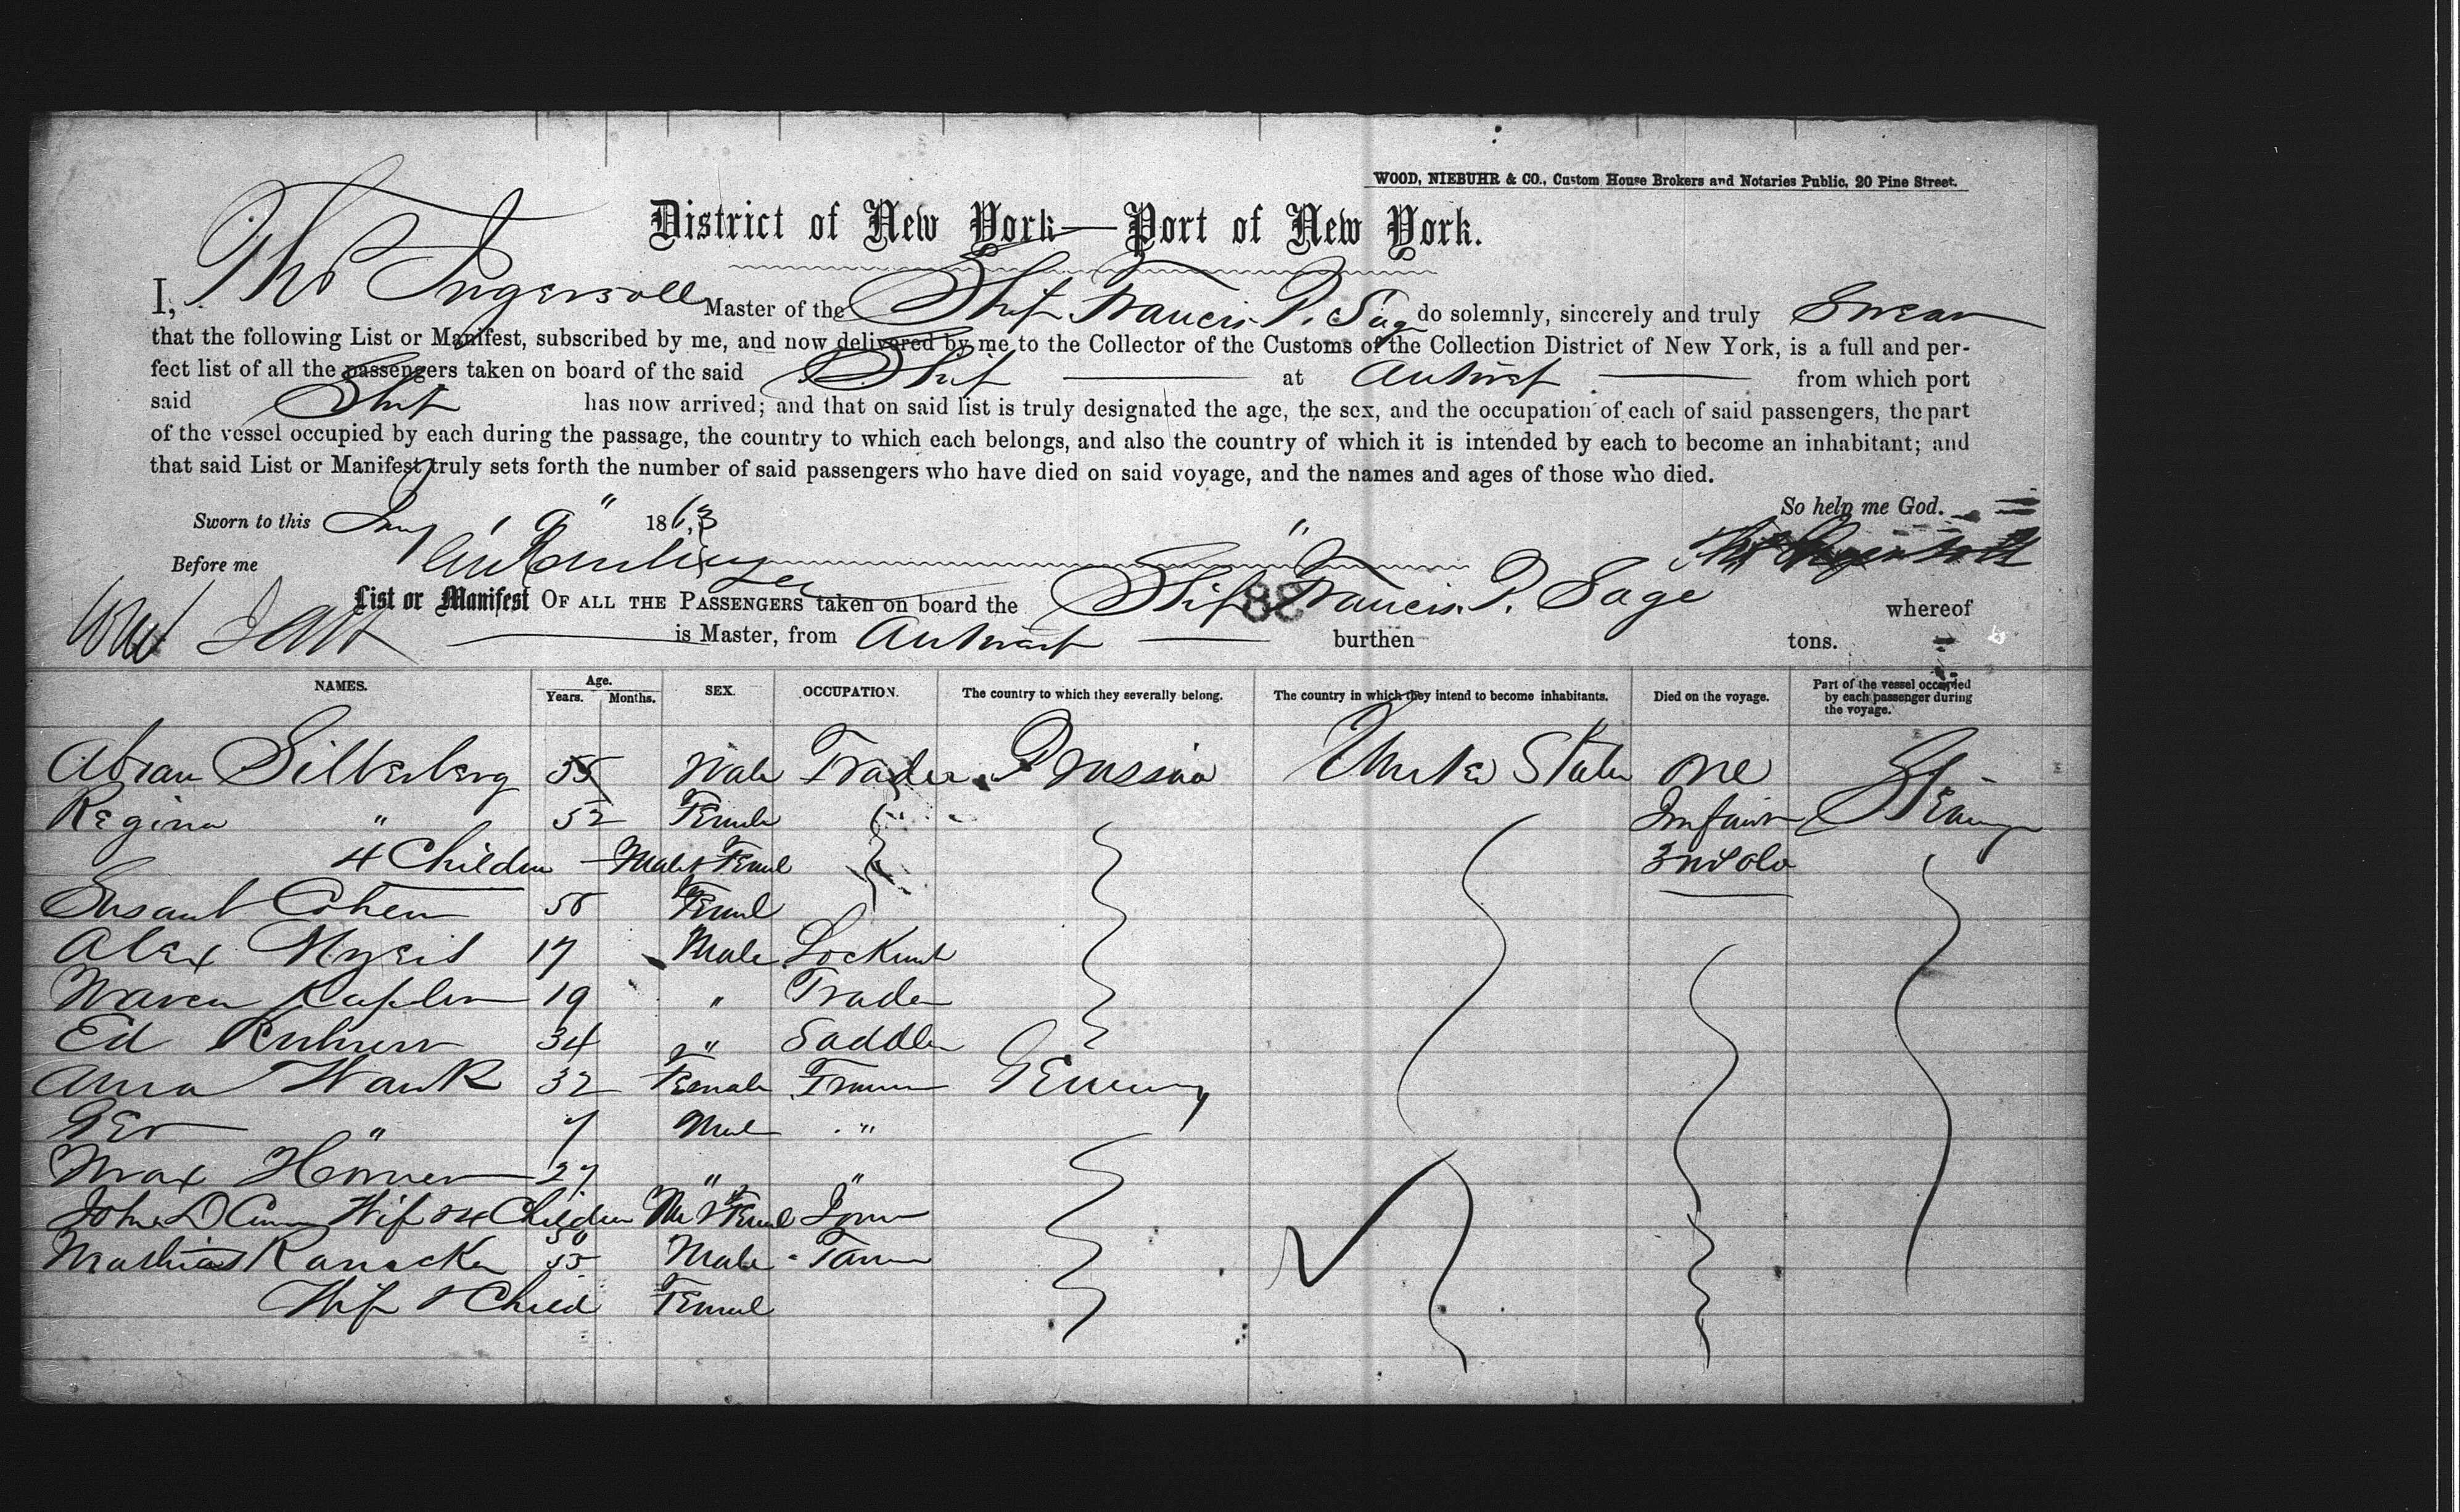 WOOD, NIEBUHR & CO., Custom House Brokers and Notaries Public, 20 Pine Street.
District of New York—Port of New York.
I, Thos Ingersoll Master of the Ship Francis P. Sage do solemnly, sincerely and truly Swear
that the following List or Manifest, subscribed by me, and now delivered by me to the Collector of the Customs of the Collection District of New York, is a full and per-
fect list of all the passengers taken on board of the said Ship at Antwerp from which port
said Ship has now arrived; and that on said list is truly designated the age, the sex, and the occupation of each of said passengers, the part
of the vessel occupied by each during the passage, the country to which each belongs, and also the country of which it is intended by each to become an inhabitant; and
that said List or Manifest truly sets forth the number of said passengers who have died on said voyage, and the names and ages of those who died.
So help me God.
Sworn to this Jany 186,3
Before me
List or Manifest OF ALL THE PASSENGERS taken on board the Ship Francis P. Sage whereof
is Master, from Antwerp burthen tons.
88
NAMES. Age. Years. Months. SEX. OCCUPATION. The country to which they severally belong. The country in which they intend to become inhabitants. Died on the voyage. Part of the vessel occupied by each passenger during the voyage.
Abram Silberberg 55 Male Trader Prussia United States one
Regina " 52 Female Infant Steerage
4 Children Male & Femal
Cohen Femal
Alex 17 Male
19 " Trader
Ed 34 " Saddler
Anna Hauk 32 Female Germany
" 7 Male "
Max 27 " "
John Wife & 4 Children & Femal
Mathias 55 Male
Wife & Child Femal